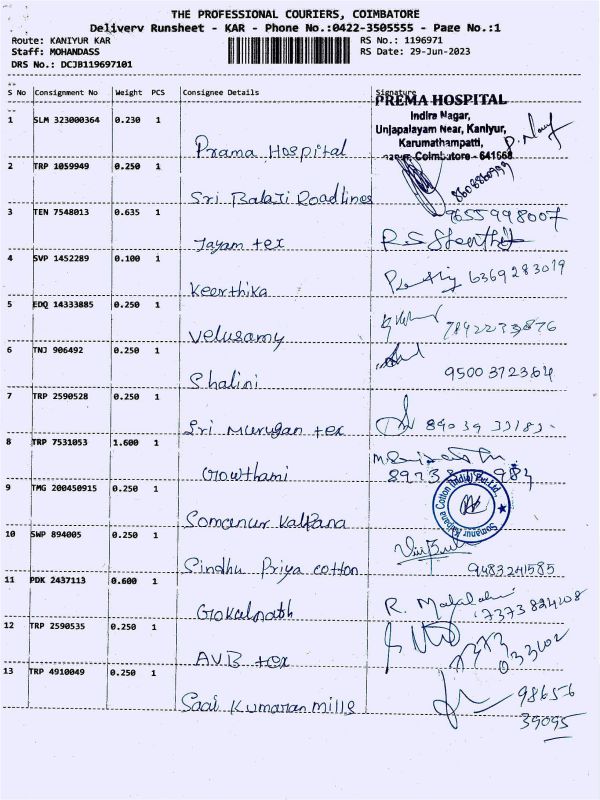 THE PROFESSIONAL COURIERS, COIMBATORE
Delivery Runsheet - KAR - Phone No.:0422-3505555 - Page No.:1
Route: KANIYUR KAR
RS No.: 1196971
Staff: MOHANDASS
RS Date: 29-Jun-2023
DRS No.: DCJB119697101
S No Consignment No Weight PCS Consignee Details Signature
PREMA HOSPITAL
Indira Nagar,
Unjapalayam Near, Kaniyur,
Karumathampatti,
Coimbatore - 641668
1 SLM 323000364 0.230 1
Prama Hospital
2 TRP 1059949 0.250 1
Sri Balaji Roadlines
3 TEN 7548013 0.635 1
9655998007
Jayam tex
4 SVP 1452289 0.100 1
Keerthika 6369283019
5 EDQ 14333885 0.250 1
Velusamy
6 TNJ 906492 0.250 1
Shalini 9500372364
7 TRP 2590528 0.250 1
Sri Murugan tex
8 TRP 7531053 1.600 1
Gowthami
9 TMG 200450915 0.250 1
Somanur Kalpana
Somanur Kalpana Cotton (India) Pvt. Ltd.
10 SWP 894005 0.250 1
Sindhu Priya cotton 9483241585
11 PDK 2437113 0.600 1
Gokulnath
12 TRP 2590535 0.250 1
AVB tex
13 TRP 4910049 0.250 1
98656
Saai Kumaran mills
39095